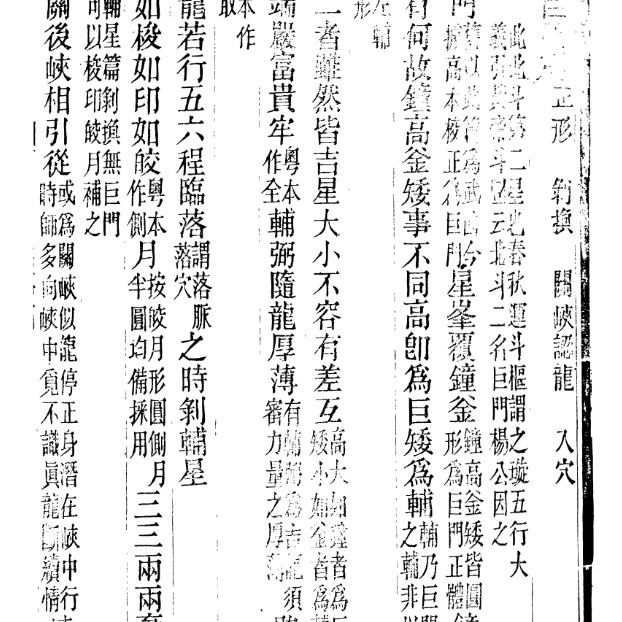 正形 剝換 關峽認龍 入穴
此北斗第二星也春秋運斗樞謂之璇五行大
義引 斗 云北斗二名巨門楊公因之
門
高本 正爲巨門
星峯覆鐘釜
鐘高釜矮皆圓
形爲巨門正體
有何故鐘高釜矮事不同高卽爲巨矮爲輔
輔乃巨門
之輔非
左輔
形
二者雖然皆吉星大小不容有差互
高大如鐘者爲
矮小如釜者爲
端嚴富貴牢
粵本
作全
輔弼隨龍厚薄
有輔弼爲吉龍須
審力量之厚薄
本作
取
龍若行五六程臨落
謂落脈
落穴
之時剝輔星
如梭如印如皎
粵本
作側
月
按皎月形圓側月
半圓均備採用
三三兩兩
輔星篇剝換無巨門
可以梭印皎月補之
關後峽相引從
或爲關峽似龍停正身潛在峽中行
時師多向峽中覓不識眞龍斷續情